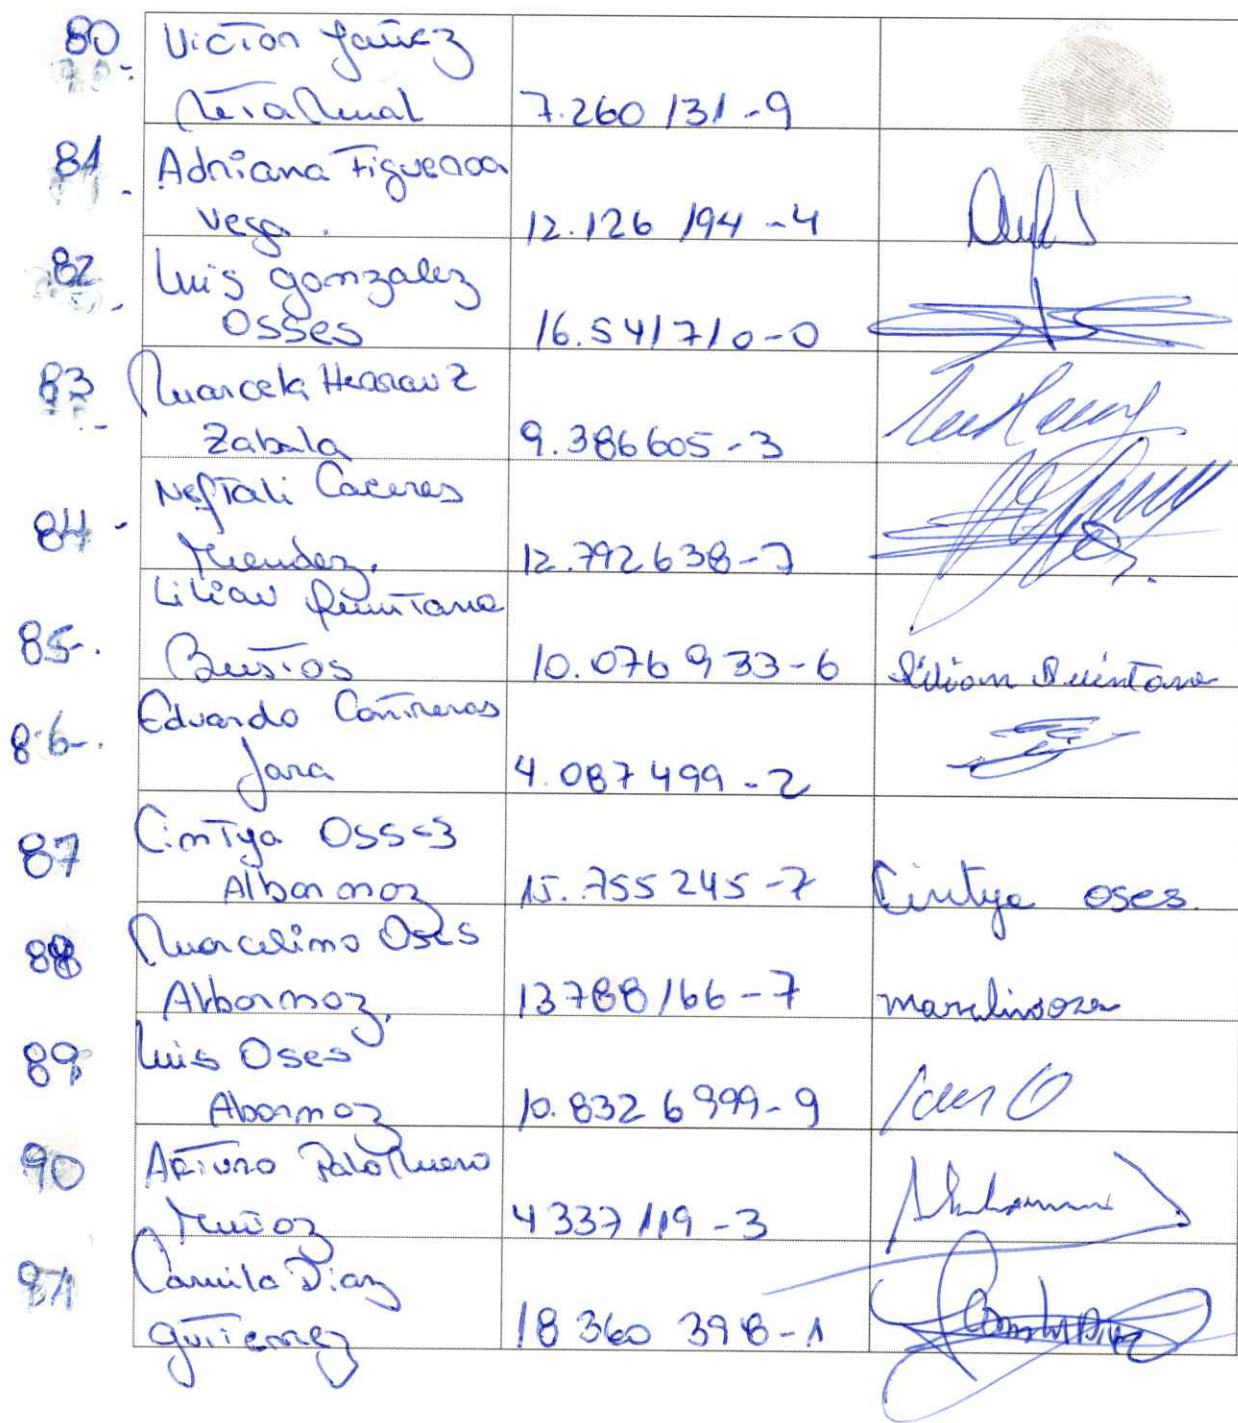 80 Victor Yañez
7.260 131-9
81 Adriana Figueroa
Vega. 12.126 194-4
82 Luis Gonzalez
Osses 16.541710-0
83 Marcela Herrauz
Zabala 9.386605-3
Neftali Caceres
84- Mendez. 12.792638-7
Lilian Quintana
85-. Bustos 10.076 933-6 Lilian Quintana
86-. Eduardo Contreras
Jara 4.087499-2
87 Cintya Osses
Albornoz 15.755245-7 Cintya oses.
88 Marcelino Oses
Albornoz. 13788166-7 marcelino oses
89 Luis Oses
Abornoz 10.832 6999-9 Luis O
90 Arturo Palomero
Muñoz 4337119-3
91 Camila Diaz
Gutierrez 18 360 398-1